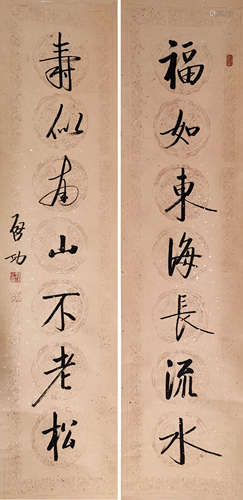 福如東海長流水
壽似南山不老松
啟功